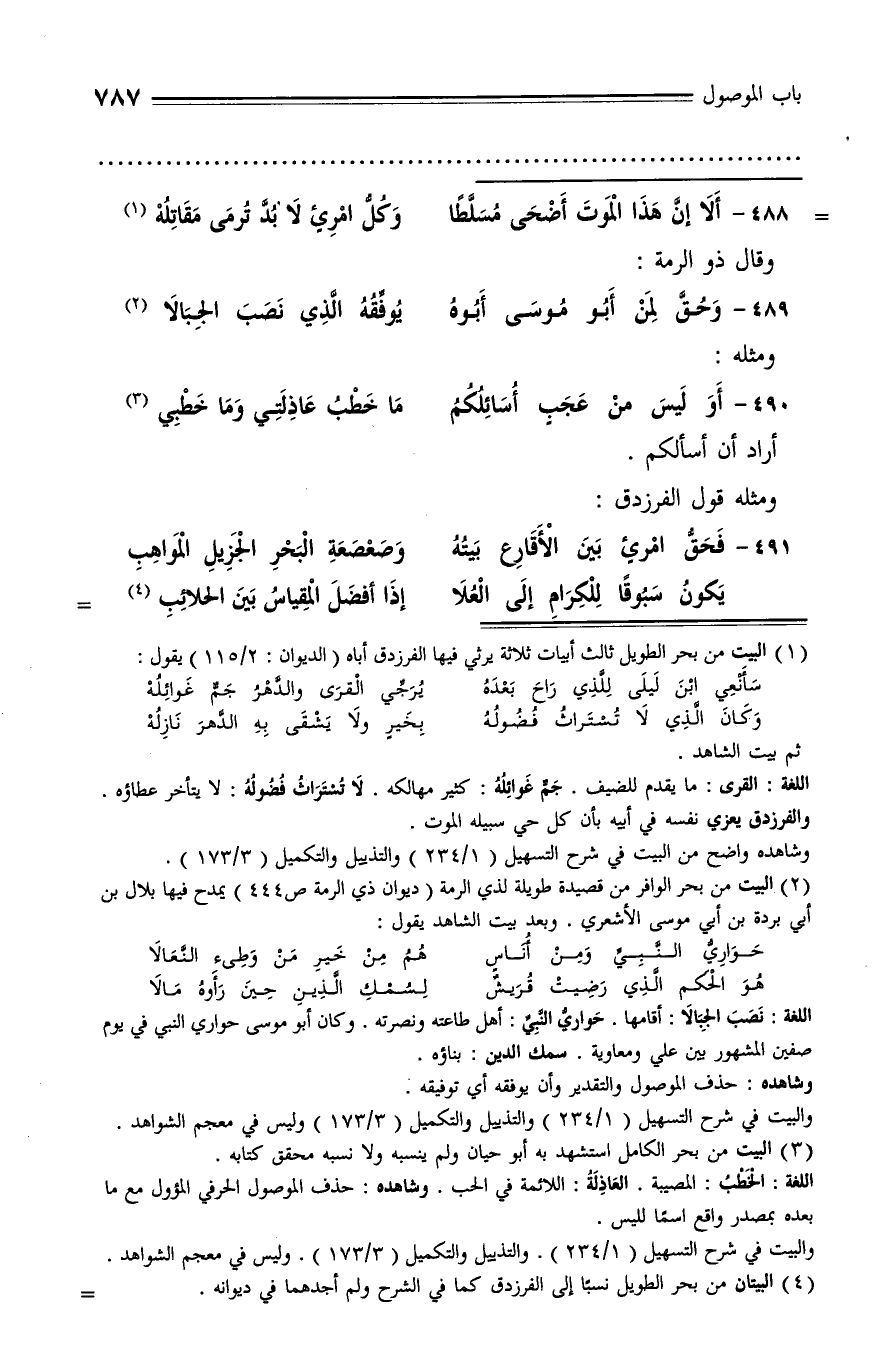 باب الموصول ٧٨٧
= ٤٨٨ - أَلَا إِنَّ هَذَا الْمَوتَ أَضْحَى مُسَلَّطًا وَكُلُّ امْرِئٍ لَا بُدَّ تُرمَى مَقَاتِلُهْ (١)
وقال ذو الرمة :
٤٨٩ - وَحُقَّ لِمَنْ أَبُو مُوسَى أَبُوهُ يُوفِّقُهُ الَّذِي نَصَبَ الجِبَالَا (٢)
ومثله :
٤٩٠ - أَوَ لَيسَ منْ عَجَبٍ أُسَائِلُكُمُ مَا خَطْبُ عَاذِلَتِي وَمَا خَطْبِي (٣)
أراد أن أسألكم .
ومثله قول الفرزدق :
٤٩١ - فَحَقُّ امْرِئٍ بَينَ الْأَقَارِعِ بَيتُهُ وَصَعْصَعَةِ الْبَحْرِ الْجَزِيلِ الْمَوَاهِبِ
يَكونُ سَبُوقًا لِلْكِرَامِ إِلَى الْعُلَا إذَا أفضَلَ الْمِقياسُ بَينَ الحلائِبِ (٤) =
(١) البيت من بحر الطويل ثالث أبيات ثلاثة يرثي فيها الفرزدق أباه ( الديوان : ١١٥/٢ ) يقول :
سَأَنْعِي ابْنَ لَيلَى لِلَّذِي رَاحَ بَعْدَهُ يُرَجِّي الْقرَى والدَّهْرُ جَمٌّ غَوائِلُهْ
وَكَانَ الَّذِي لَا تُسْتَراثُ فُضُولُهُ بِخَيرٍ ولَا يَشْقَى بِهِ الدَّهرَ نَازِلُهْ
ثم بيت الشاهد .
اللغة : القرى : ما يقدم للضيف . جَمٌّ غَوائِلُهُ : كثير مهالكه . لَا تُسْتَرَاثُ فُضُولُهُ : لا يتأخر عطاؤه .
والفرزدق يعزي نفسه في أبيه بأن كل حي سبيله الموت .
وشاهده واضح من البيت في شرح التسهيل ( ٢٣٤/١ ) والتذييل والتكميل ( ١٧٣/٣ ) .
(٢) البيت من بحر الوافر من قصيدة طويلة لذي الرمة ( ديوان ذي الرمة ص٤٤٤ ) يمدح فيها بلال بن
أبي بردة بن أبي موسى الأشعري . وبعد بيت الشاهد يقول :
حَوَارِيُّ النَّبِيِّ وَمِنْ أُنَاسٍ هُمُ مِنْ خَيرِ مَنْ وَطِىء النِّعَالَا
هُوَ الْحَكم الَّذِي رَضِيتْ قُرَيشٌ لِسُمْكِ الَّدِينِ حِينَ رَأَوهُ مَالَا
اللغة : نَصَبَ الجبَالَا : أقامها . حَواريُّ النَّبِيِّ : أهل طاعته ونصرته . وكان أبو موسى حواري النبي في يوم
صفين المشهور بين علي ومعاوية . سمك الدين : بناؤه .
وشاهده : حذف الموصول والتقدير وأن يوفقه أي توفيقه .
والبيت في شرح التسهيل ( ٢٣٤/١ ) والتذييل والتكميل ( ١٧٣/٣ ) وليس في معجم الشواهد .
(٣) البيت من بحر الكامل استشهد به أبو حيان ولم ينسبه ولا نسبه محقق كتابه .
اللغة : الخَطْبُ : المصيبة . العَاذِلَةُ : اللائمة في الحب . وشاهده : حذف الموصول الحرفي المؤول مع ما
بعده بمصدر واقع اسمًا لليس .
والبيت في شرح التسهيل ( ٢٣٤/١ ) . والتذييل والتكميل ( ١٧٣/٣ ) . وليس في معجم الشواهد .
(٤) البيتان من بحر الطويل نسبًا إلى الفرزدق كما في الشرح ولم أجدهما في ديوانه . =